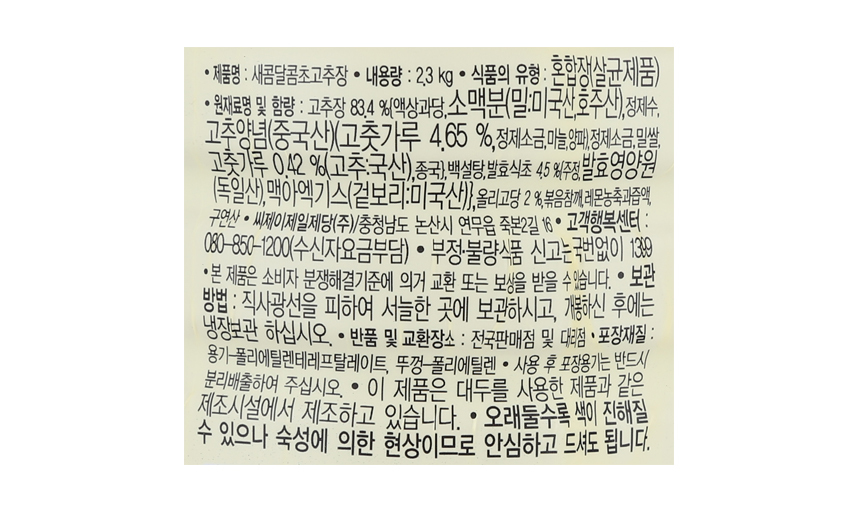 • 제품명 : 새콤달콤초고추장 • 내용량 : 2.3 kg • 식품의 유형 : 혼합장(살균제품)
• 원재료명 및 함량 : 고추장 83.4 %{액상과당, 소맥분(밀:미국산,호주산), 정제수,
고추양념(중국산)(고춧가루 4.65 %, 정제소금, 마늘, 양파), 정제소금, 밀쌀,
고춧가루 0.42 %(고추:국산), 종국}, 백설탕, 발효식초 4.5 %{주정, 발효영양원
(독일산), 맥아엑기스(겉보리:미국산)}, 올리고당 2 %, 볶음참깨, 레몬농축과즙액,
구연산 • 씨제이제일제당(주)/충청남도 논산시 연무읍 죽본2길 16 • 고객행복센터 :
080-850-1200(수신자요금부담) • 부정·불량식품 신고는 국번없이 1399
• 본 제품은 소비자 분쟁해결기준에 의거 교환 또는 보상을 받을 수 있습니다. • 보관
방법 : 직사광선을 피하여 서늘한 곳에 보관하시고, 개봉하신 후에는
냉장보관 하십시오. • 반품 및 교환장소 : 전국판매점 및 대리점 • 포장재질 :
용기-폴리에틸렌테레프탈레이트, 뚜껑-폴리에틸렌 • 사용 후 포장용기는 반드시
분리배출하여 주십시오. • 이 제품은 대두를 사용한 제품과 같은
제조시설에서 제조하고 있습니다. • 오래둘수록 색이 진해질
수 있으나 숙성에 의한 현상이므로 안심하고 드셔도 됩니다.